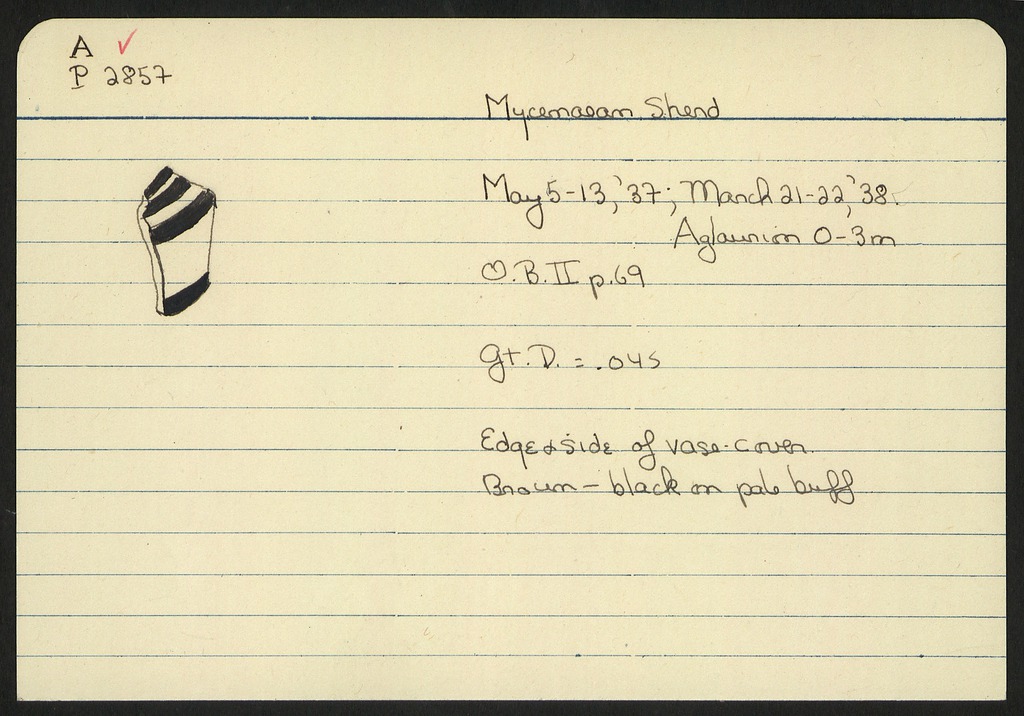 A ✓
P 2857
Mycenaean Sherd
May 5-13, '37; March 21-22, '38.
Aglaurion 0-3m
O.B. II p.69
gt. D. = .045
Edge & side of vase-cover.
Brown - black on pale buff